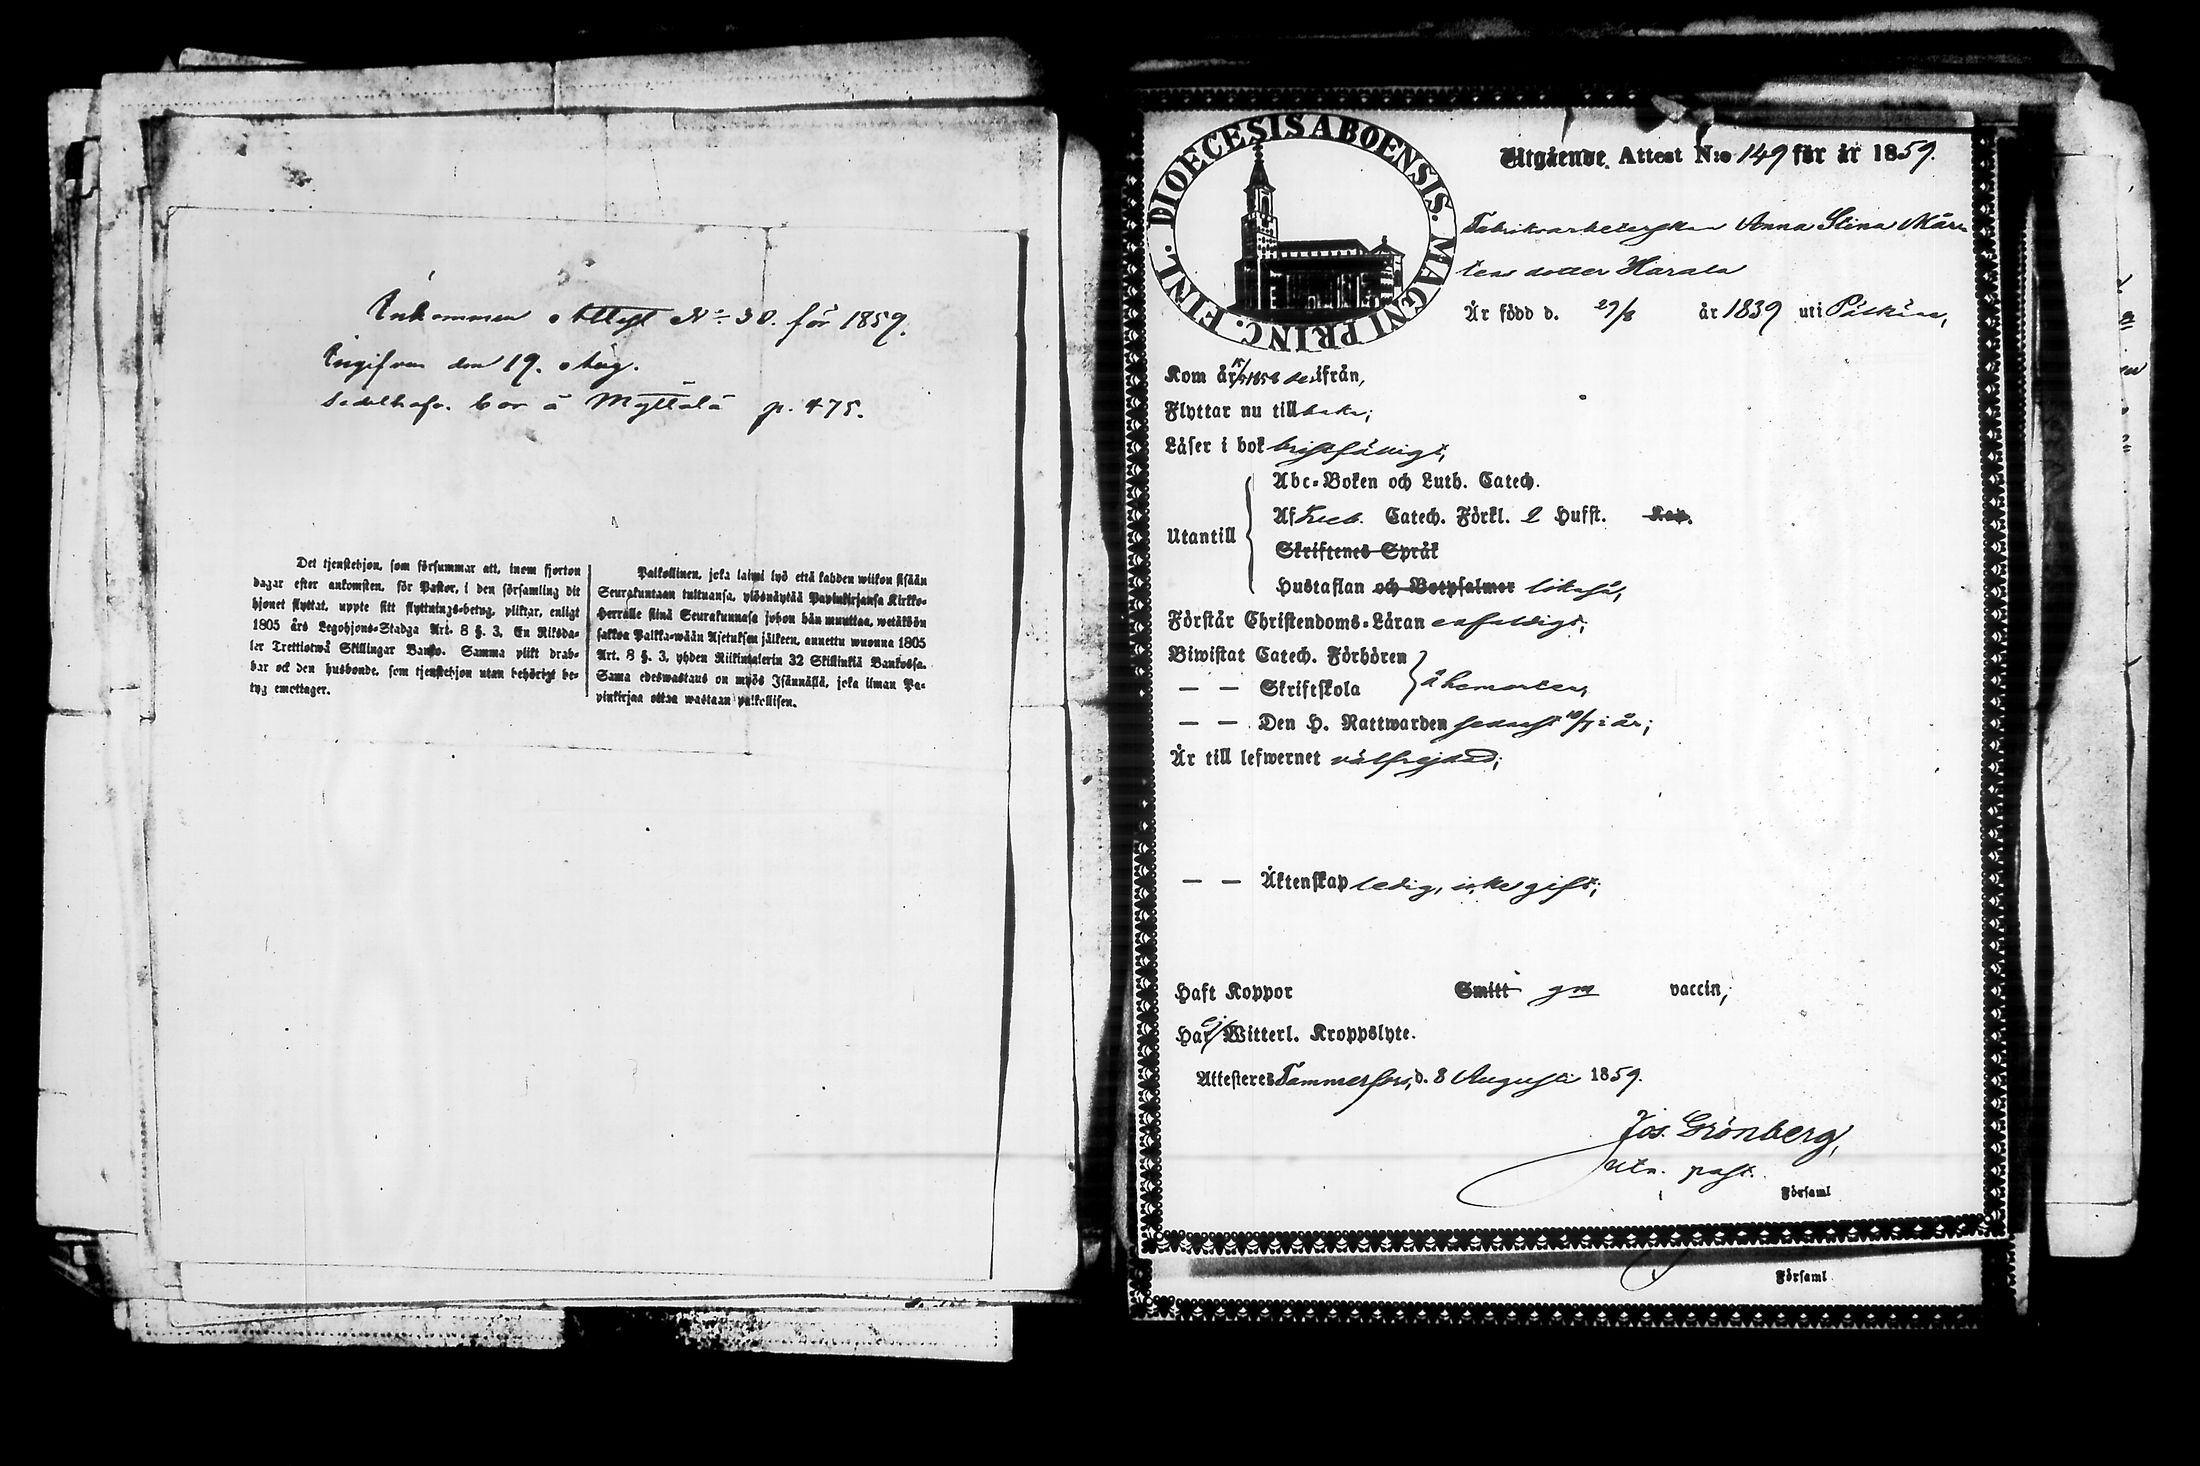 Inkommen Attest N:o 30. för 1859.
Ingifven den 19. Aug.
Sedelhafv. bor å Myttälä p. 475.
Det tjenstehjon, som försummar att, inom fjorton
dagar efter ankomsten, för Pastor, i den församling dit
hjonet flyttat, uppte sitt flyttnings-betyg, pliktar, enligt
1805 års Legohjons-Stadga Art. 8 §. 3, En Riksda-
ler Trettiotwå Skillingar Banko. Samma plikt drab-
bar ock den husbonde, som tjenstehjon utan behörigt be-
tyg emottager.
Palkollinen, joka laimi lyö että kahden wiikon sisään
Seurakuntaan tultuansa, ylösnäytää Papinkirjansa Kirkko-
Herralle siinä Seurakunnasa johon hän muuttaa, wetäköön
sakkoa Palkka-wään Ajetuksen jälkeen, annettu wuonna 1805
Art. 8 §. 3, yhden Riikintalerin 32 Skillinkiä Bankossa.
Sama edeswastaus on myös Isännällä, joka ilman Pa-
pinkirjaa ottaa wastaan palkollisen.
FINL. DIOECESIS ABOENSIS. MAGNI PRINC.
Utgående Attest N:o 149 för år 1859.
Fabriksarbeterskan Anna Stina Mår-
tens dotter Harala
Är född d. 27/8 år 1839 uti Pälkäne,
Kom år 1858 derifrån,
Flyttar nu tillbaka;
Läser i bok bristfälligt;
Utantill
Abc-Boken och Luth. Catech.
Af Sveb. Catech. Förkl. 2 Hufst. Kap.
Skriftenes Språk
Hustaflan och Botpsalmer likaså,
Förstår Christendoms-Läran enfaldigt;
Biwistat Catech. Förhören
— — Skriftskola
å hemorten,
— — Den H. Nattwarden senast i år;
Är till lefwernet välfrejdad;
— — Äktenskap ledig, icke gift;
Haft Koppor Smitt gm vaccin,
Har ej Witterl. Kroppslyte.
Attesteras Tammerfors, d. 8 Augusti 1859.
Jos. Grönberg,
past.
Församl
Församl